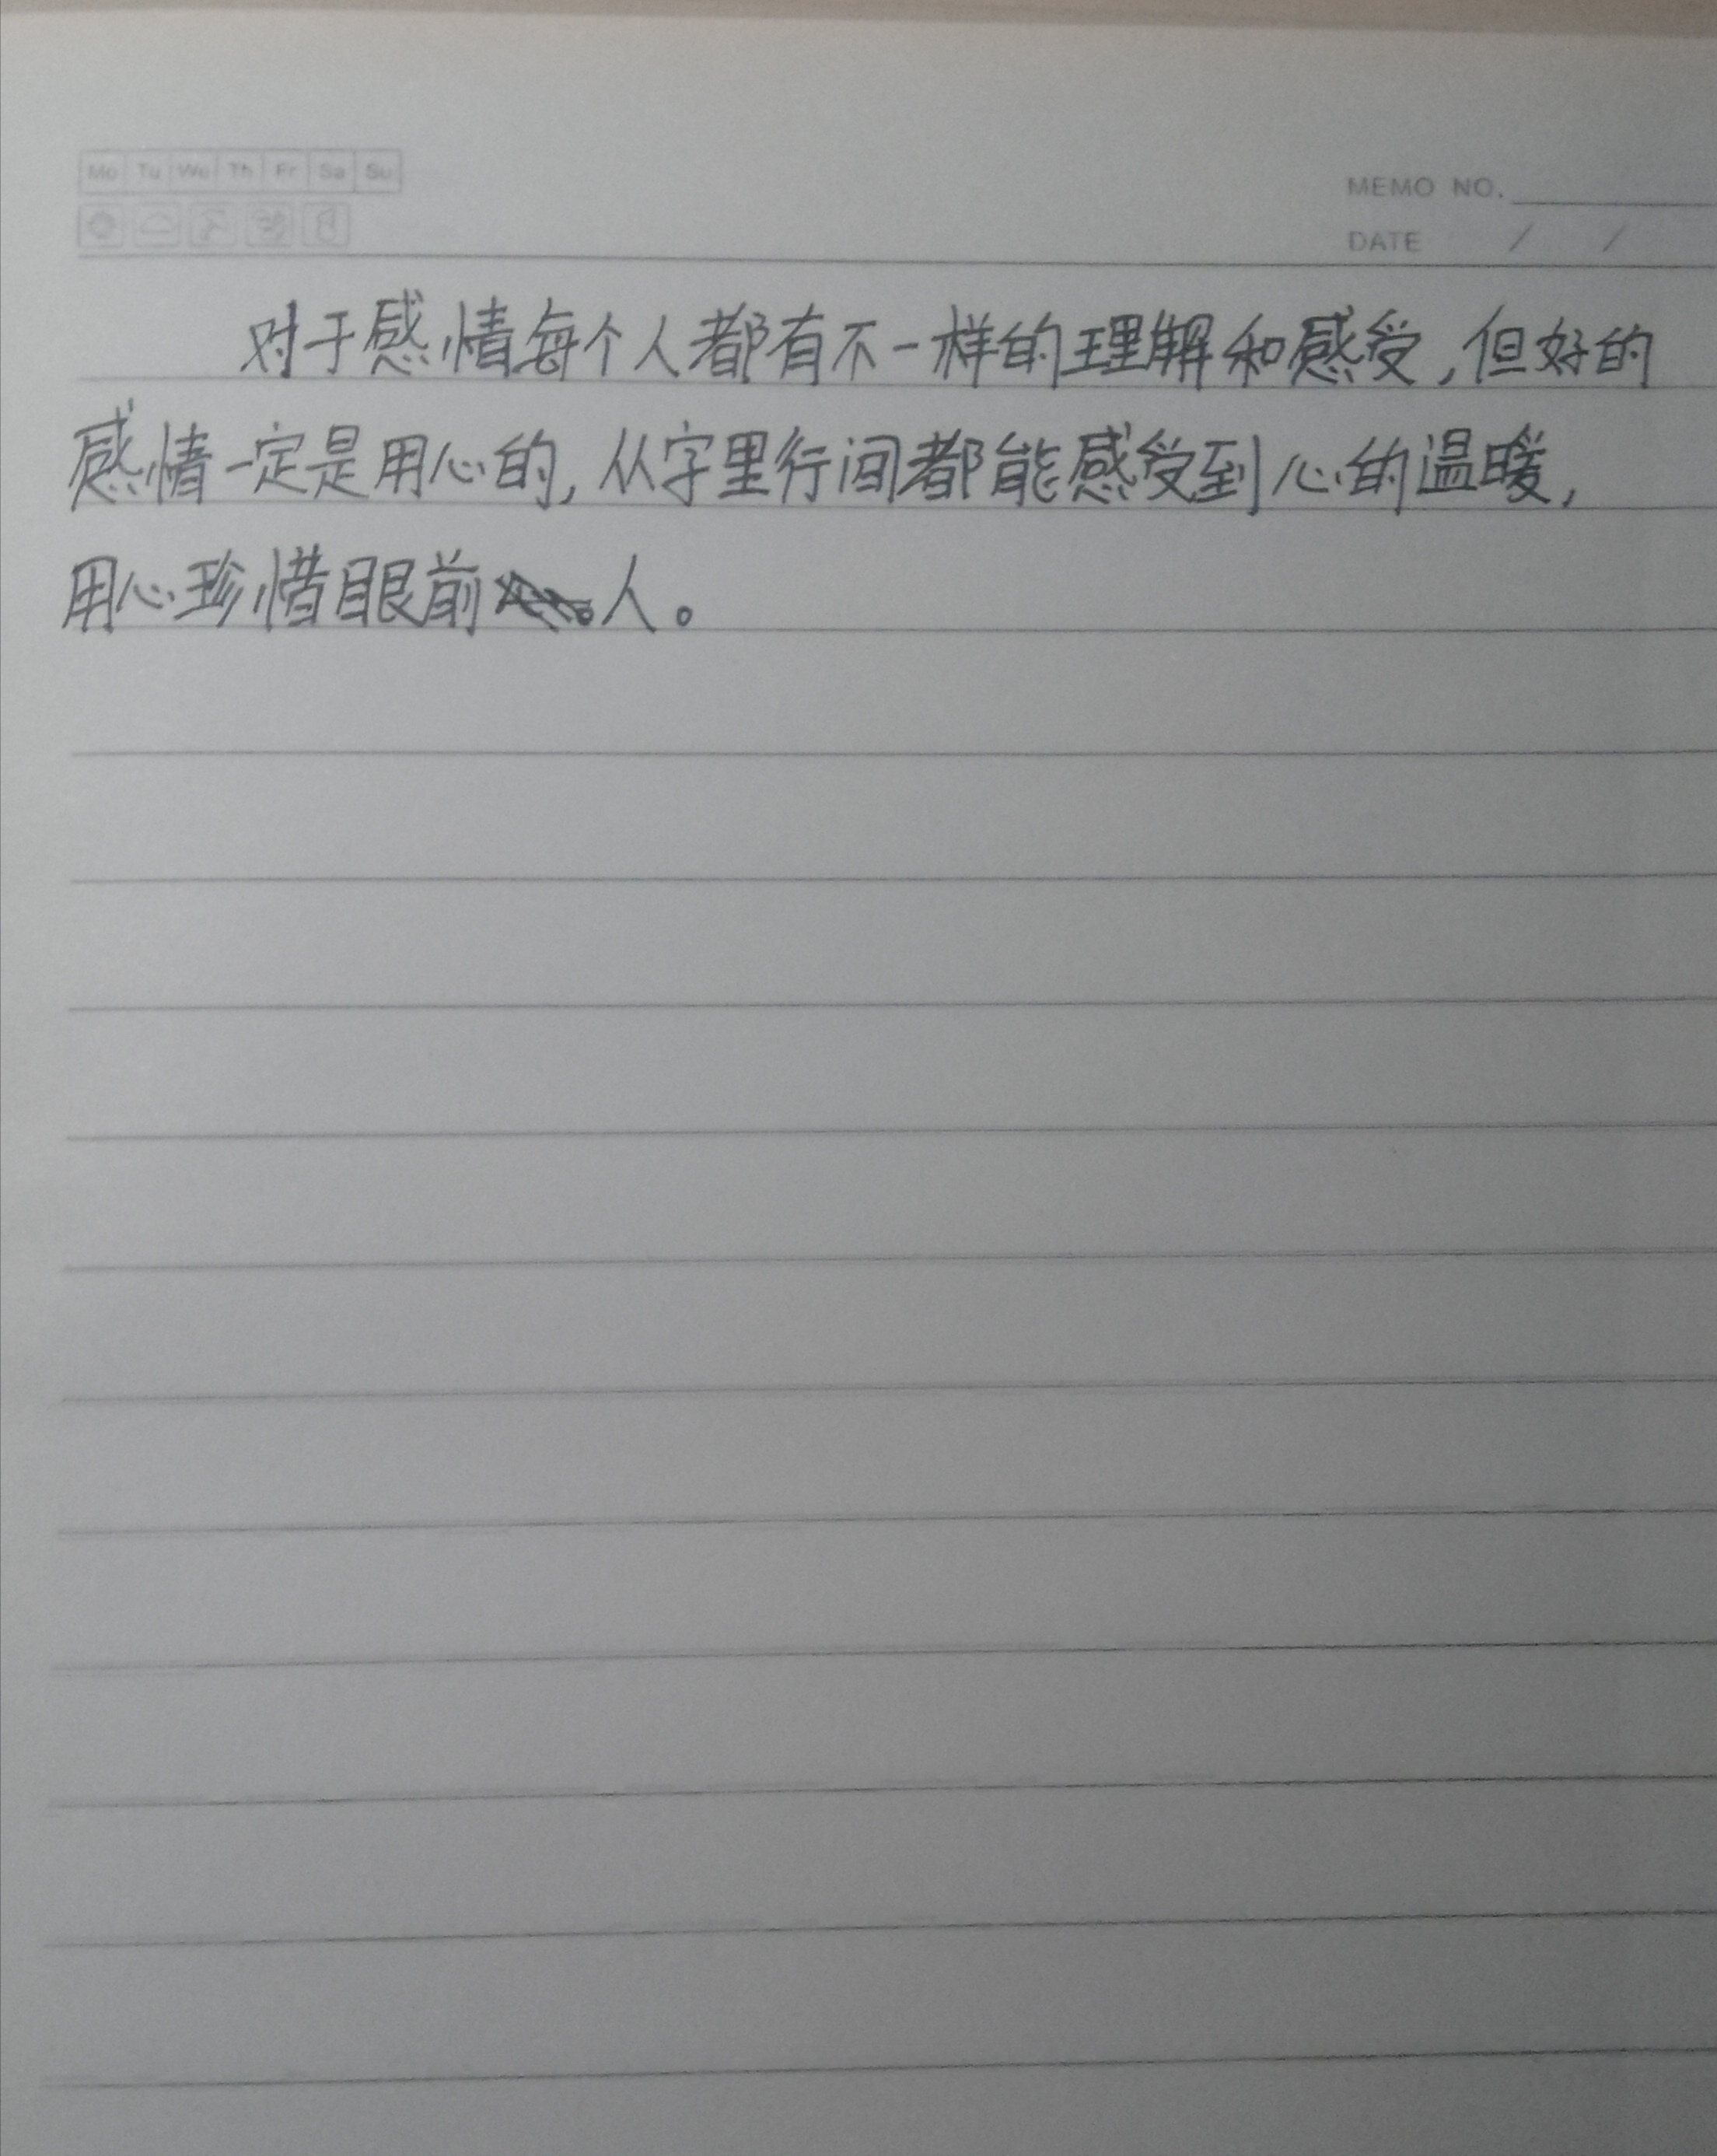 Mo Tu We Th Fr Sa Su
MEMO NO.
DATE / /
对于感情每个人都有不一样的理解和感受,但好的
感情一定是用心的,从字里行间都能感受到心的温暖,
用心珍惜眼前人。